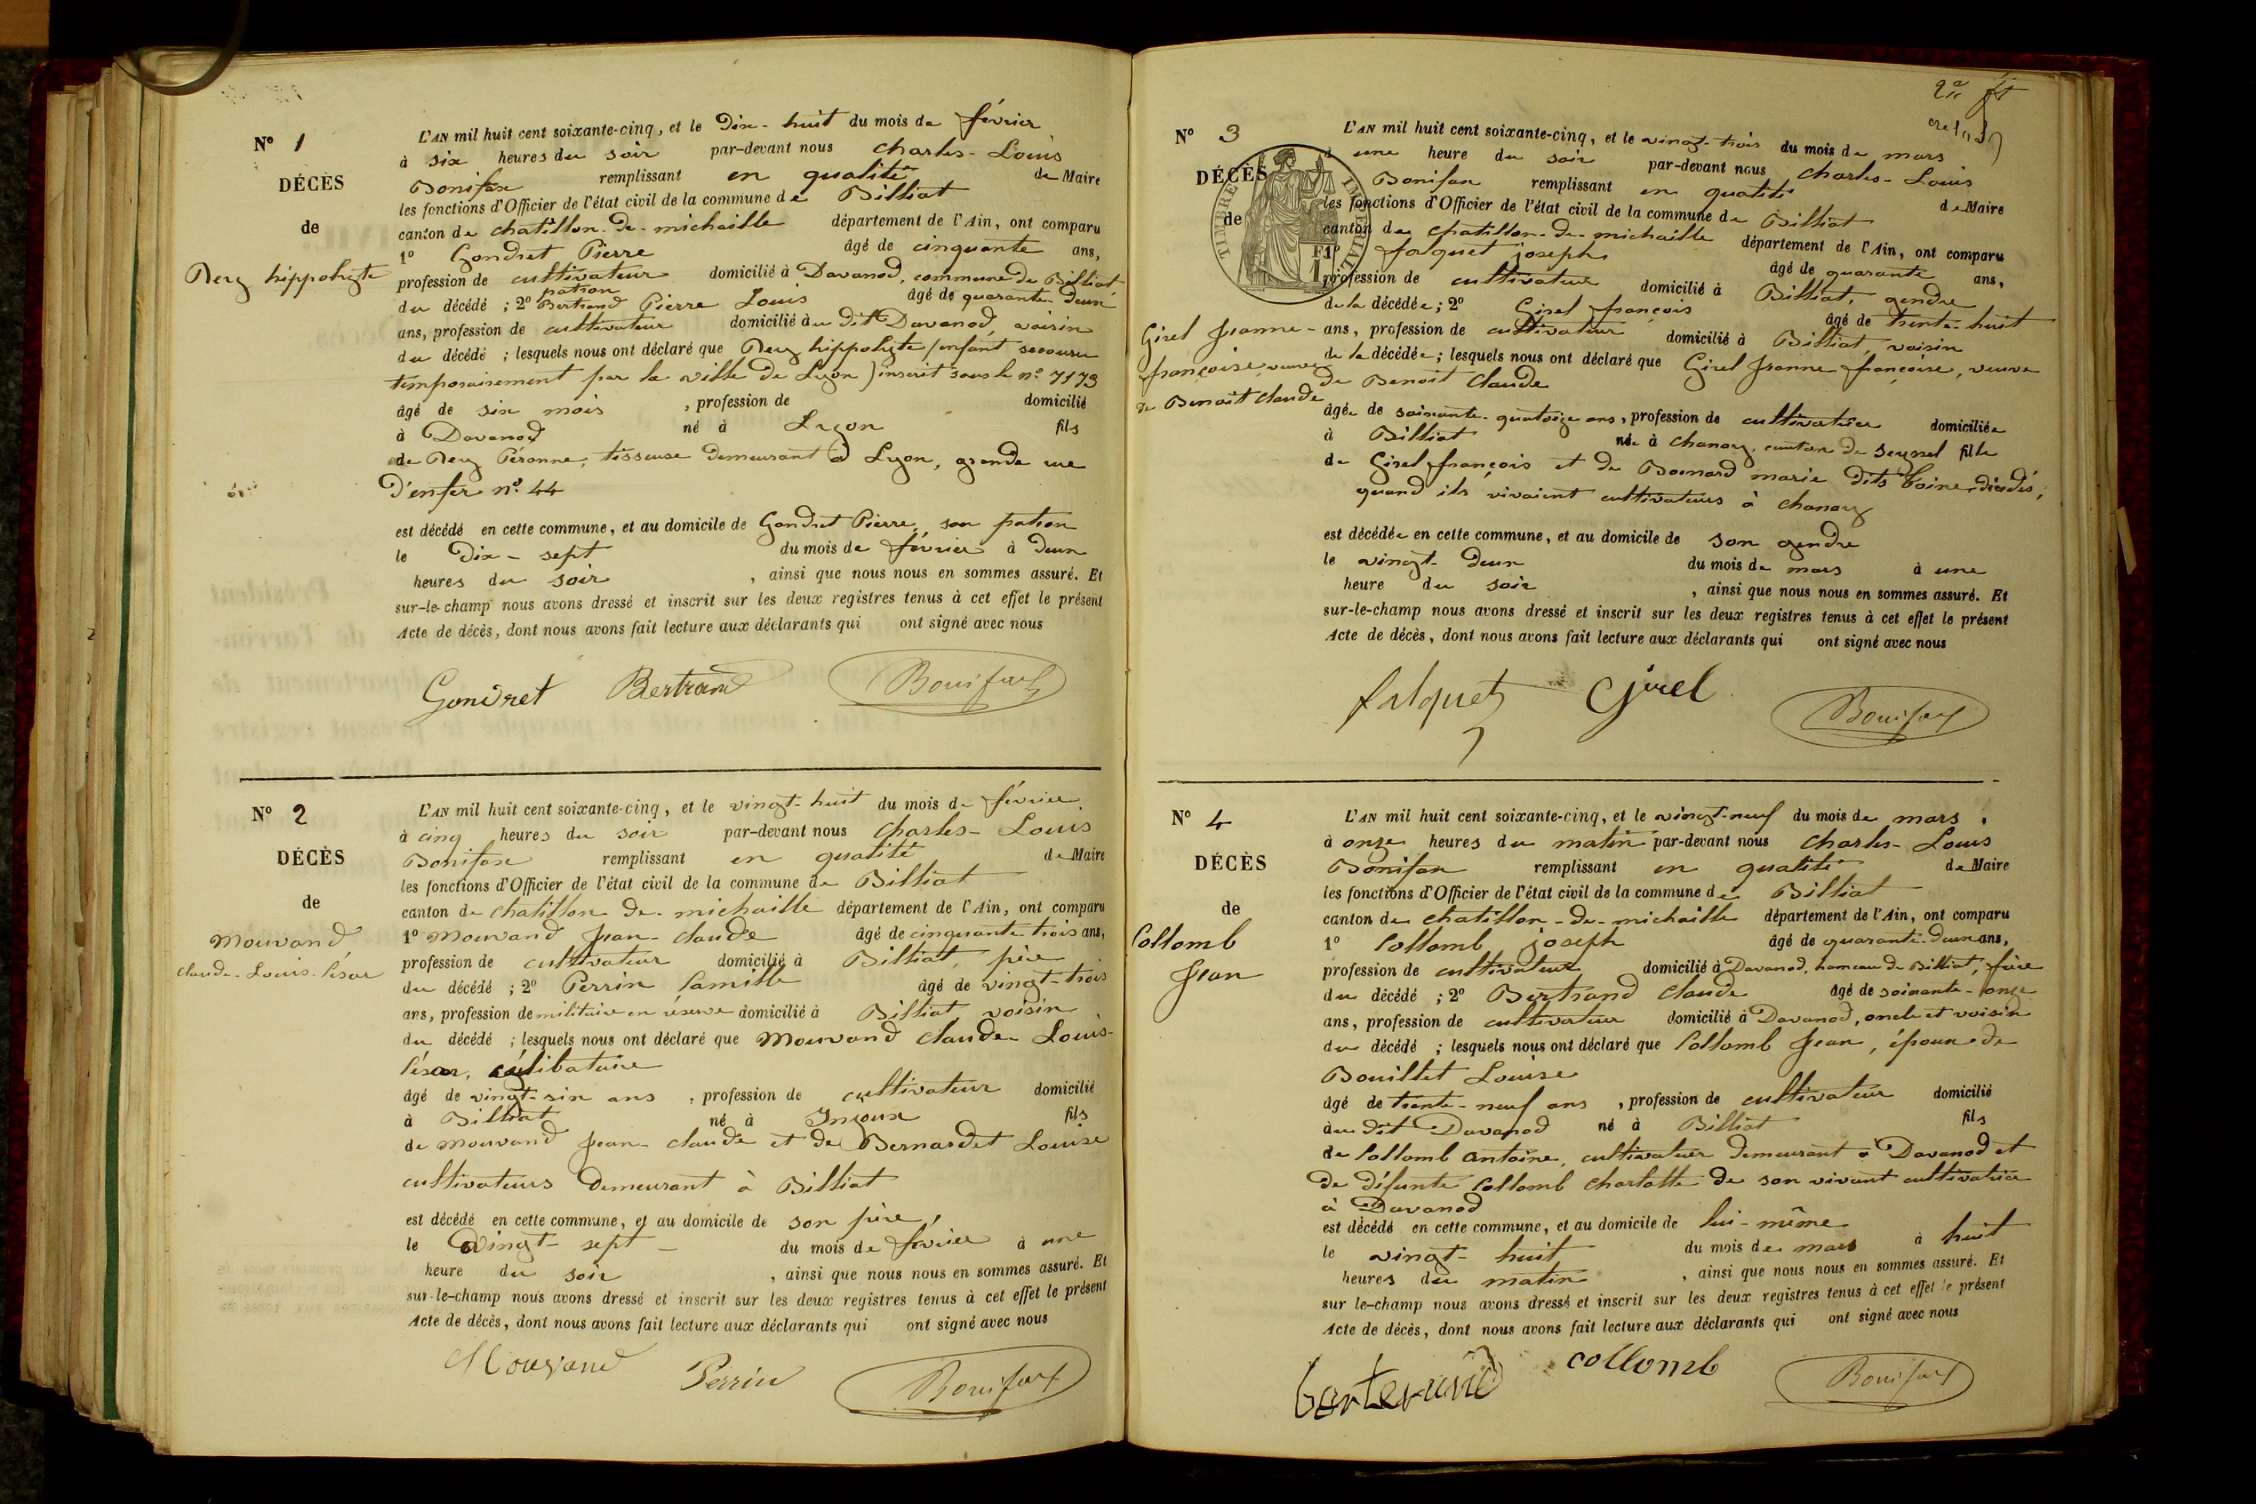 N° 1
DÉCÈS
de
Nery hippolyte
L'AN mil huit cent soixante-cinq, et le Dix-huit du mois de février
à six heures du soir par-devant nous Charles-Louis
Bonifax remplissant en qualité de Maire
les fonctions d'Officier de l'état civil de la commune de Billiat
canton de Chatillon-de-michaille département de l'Ain, ont comparu
1° Gondret Pierre âgé de cinquante ans,
profession de cultivateur domicilié à Davanod, commune de Billiat,
patron
du décédé ; 2° Bertrand Pierre Louis âgé de quarante-deux
ans, profession de cultivateur domicilié au dit Davanod, voisin
du décédé ; lesquels nous ont déclaré que Nery hippolyte (enfant secouru
temporairement par la ville de Lyon) inscrit sous le n° 7173
âgé de six mois , profession de domicilié
à Davanod né à Lyon fils
de Nery Péronne, tisseuse demeurant à Lyon, grande rue
d'enfer n° 44
est décédé en cette commune, et au domicile de Gondret Pierre, son patron
le Dix-sept du mois de février à deux
heures du soir , ainsi que nous nous en sommes assuré. Et
sur-le-champ nous avons dressé et inscrit sur les deux registres tenus à cet effet le présent
Acte de décès, dont nous avons fait lecture aux déclarants qui ont signé avec nous
Gondret Bertrand Bonifax
N° 2
DÉCÈS
de
Mouvand
Claude-Louis-César
L'AN mil huit cent soixante-cinq, et le vingt-huit du mois de février,
à cinq heures du soir par-devant nous Charles-Louis
Bonifax remplissant en qualité de Maire
les fonctions d'Officier de l'état civil de la commune de Billiat
canton de Chatillon-de-michaille département de l'Ain, ont comparu
1° Mouvand Jean-Claude âgé de cinquante-trois ans,
profession de cultivateur domicilié à Billiat, père
du décédé ; 2° Perrin Camille âgé de vingt-trois
ans, profession de militaire en réserve domicilié à Billiat voisin
du décédé ; lesquels nous ont déclaré que Mouvand Claude-Louis-
César, célibataire
âgé de vingt-six ans , profession de cultivateur domicilié
à Billiat né à Injoux fils
de Mouvand Jean-Claude et de Bernardet Louise
cultivateurs demeurant à Billiat
est décédé en cette commune, et au domicile de son père,
le vingt-sept du mois de février à une
heure du soir , ainsi que nous nous en sommes assuré. Et
sur-le-champ nous avons dressé et inscrit sur les deux registres tenus à cet effet le présent
Acte de décès, dont nous avons fait lecture aux déclarants qui ont signé avec nous
Mouvand Perrin Bonifax
N° 3
DÉCÈS
de
TIMBRE IMPERIAL
Girel Jeanne-
françoise, veuve
de Benoit Claude
L'AN mil huit cent soixante-cinq, et le vingt-trois du mois de mars
à une heure du soir par-devant nous Charles-Louis
Bonifax remplissant en qualité de Maire
les fonctions d'Officier de l'état civil de la commune de Billiat
canton de Chatillon-de-michaille département de l'Ain, ont comparu
1° falquet joseph âgé de quarante ans,
profession de cultivateur domicilié à Billiat, gendre
de la décédée ; 2° Girel françois âgé de trente-huit
ans, profession de cultivateur domicilié à Billiat, voisin
de la décédée ; lesquels nous ont déclaré que Girel Jeanne françoise, veuve
de Benoit Claude
âgée de soixante-quatorze ans, profession de cultivatrice domiciliée
à Billiat née à Chanay, canton de Seyssel fille
de Girel françois et de Bornard marie dits décédés,
quand ils vivaient cultivateurs à Chanay
est décédée en cette commune, et au domicile de son gendre
le vingt-deux du mois de mars à une
heure du soir , ainsi que nous nous en sommes assuré. Et
sur-le-champ nous avons dressé et inscrit sur les deux registres tenus à cet effet le présent
Acte de décès, dont nous avons fait lecture aux déclarants qui ont signé avec nous
falquet Girel Bonifax
N° 4
DÉCÈS
de
Collomb
Jean
L'AN mil huit cent soixante-cinq, et le vingt-neuf du mois de mars,
à onze heures du matin par-devant nous Charles-Louis
Bonifax remplissant en qualité de Maire
les fonctions d'Officier de l'état civil de la commune de Billiat
canton de Chatillon-de-michaille département de l'Ain, ont comparu
1° Collomb joseph âgé de quarante-deux ans,
profession de cultivateur domicilié à Davanod, hameau de Billiat, frère
du décédé ; 2° Bertrand Claude âgé de soixante-onze
ans, profession de cultivateur domicilié à Davanod, oncle et voisin
du décédé ; lesquels nous ont déclaré que Collomb Jean, époux de
Bouillet Louise
âgé de trente-neuf ans , profession de cultivateur domicilié
au dit Davanod né à Billiat fils
de Collomb Antoine, cultivateur demeurant à Davanod et
de défunte Collomb Charlotte de son vivant cultivatrice
à Davanod
est décédé en cette commune, et au domicile de lui-même
le vingt-huit du mois de mars à huit
heures du matin , ainsi que nous nous en sommes assuré. Et
sur le-champ nous avons dressé et inscrit sur les deux registres tenus à cet effet le présent
Acte de décès, dont nous avons fait lecture aux déclarants qui ont signé avec nous
collomb Bonifax